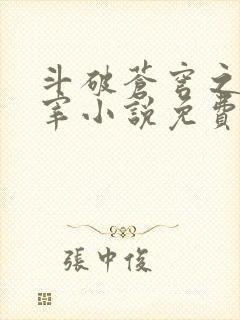 斗破蒼穹之
宰小說免費
張中俊